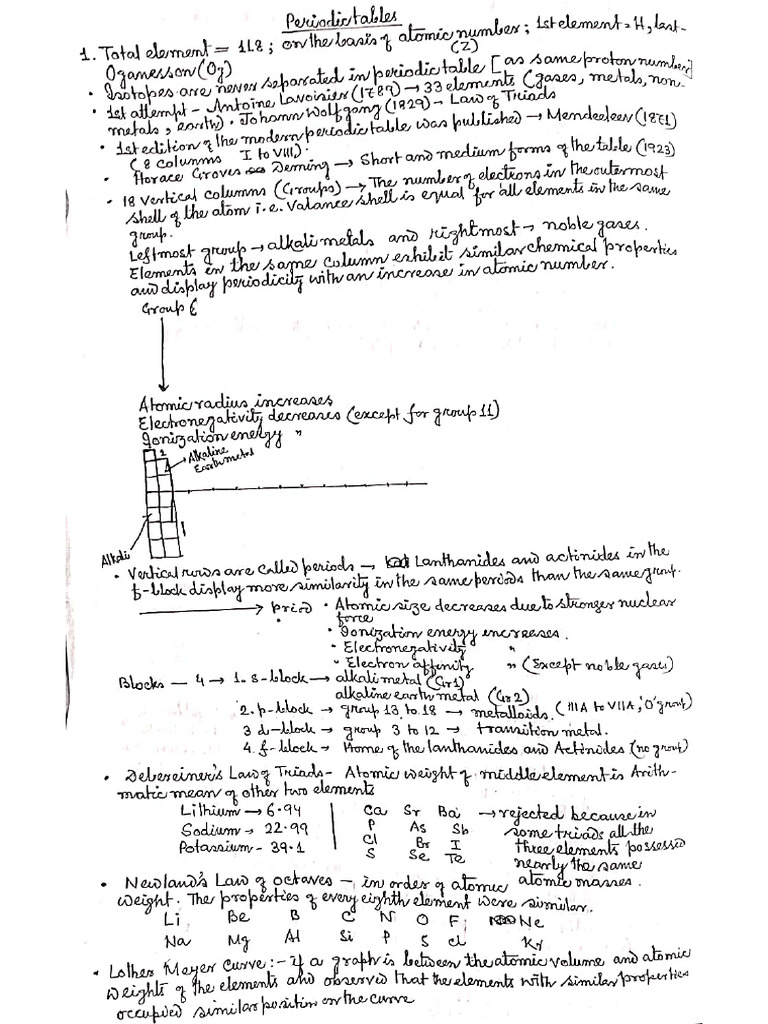 Periodictables
1. Total element = 118 ; on the basis of atomic number ; 1st element = H, last-
(Z)
Oganesson (Og)
• Isotopes are never separated in periodic table [as same proton number]
• 1st attempt - Antoine Lavoisier (1789) → 33 elements (gases, metals, non-
metals, earth) • Johann Wolfgang (1829) - Law of Triads
• 1st edition of the modern periodic table was published → Mendeleev (1871)
(8 columns I to VIII).
• Horace Groves Deming → Short and medium forms of the table (1923)
• 18 vertical columns (Groups) → The number of electrons in the outermost
shell of the atom i.e. Valance shell is equal for all elements in the same
group.
Leftmost group → alkali metals and rightmost → noble gases.
Elements in the same column exhibit similar chemical properties
and display periodicity with an increase in atomic number.
Group
Atomic radius increases
Electronegativity decreases (except for group 11)
Ionization energy "
2
Alkaline
Earth metal
Alkali
• Vertical rows are called periods → Lanthanides and actinides in the
f-block display more similarity in the same periods than the same group.
→ Priod • Atomic size decreases due to stronger nuclear
force
• Ionization energy increases.
• Electronegativity "
• Electron affinity " (Except noble gases)
Blocks — 4 → 1. s-block → alkali metal (Gr1)
alkaline earth metal (Gr2)
2. p-block → group 13 to 18 → metalloids. (IIIA to VIIA, 'O' group)
3 d-block → group 3 to 12 → transition metal.
4. f-block → Home of the lanthanides and Actinides (no group)
• Debereiner's Law of Triads - Atomic weight of middle element is Arith-
matic mean of other two elements
Lithium → 6.94 Ca Sr Ba → rejected because in
Sodium → 22.99 P As Sb some triads all the
Potassium - 39.1 Cl Br I three elements possessed
S Se Te nearly the same
atomic masses.
• Newland's Law of octaves - in order of atomic
weight. The properties of every eighth element were similar.
Li Be B C N O F Ne
Na Mg Al Si P S Cl Kr
• Lother Meyer Curve :- If a graph is between the atomic volume and atomic
weights of the elements and observed that the elements with similar properties
occupied similar position on the curve